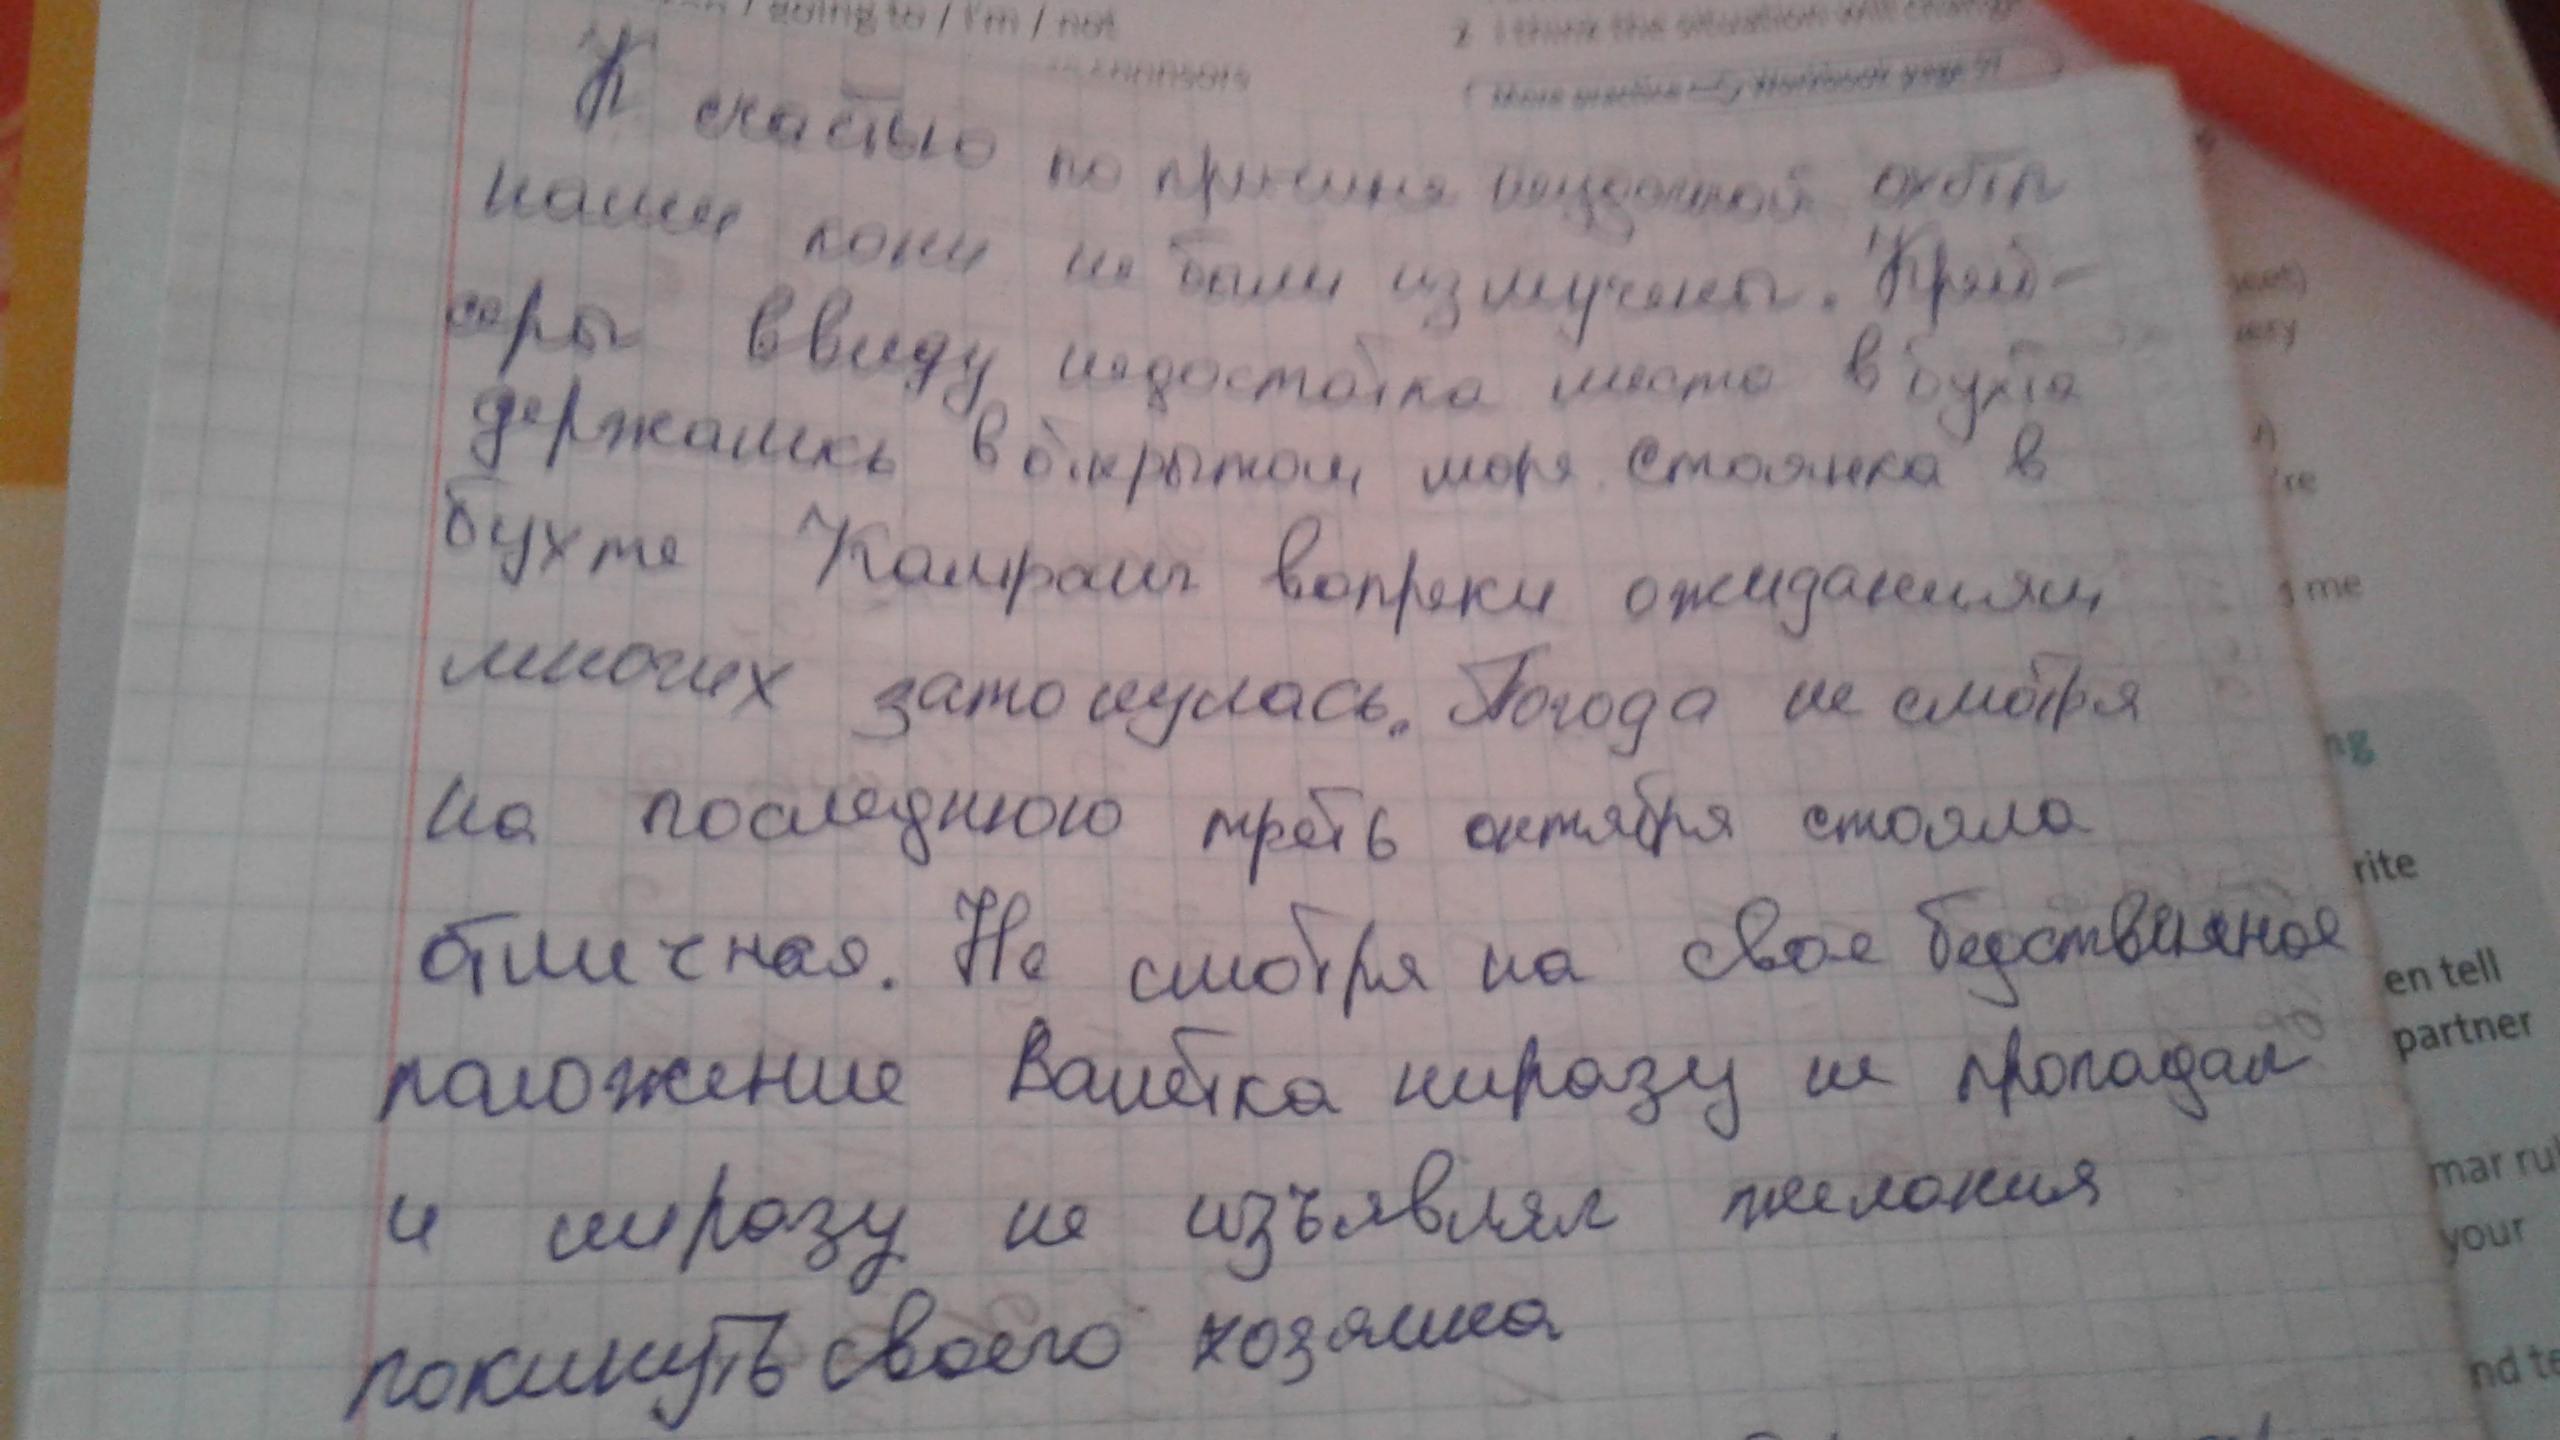 going to / I'm / not
2 I think the situation will change
К счастью по причине неудачной охоты
наши кони не были измучены. Крей-
серы ввиду недостатка места в бухте
держались в открытом море. Стоянка в
бухте Камрань вопреки ожиданиям
многих затонулась. Погода не смотря
на последнюю треть октября стояла
отличная. Не смотря на свое бедственное
положение Валетка ниразу не пропадал
и ниразу не изъявлял желания
покинуть своего хозяина
me
ng
rite
en tell
partner
mar rul
your
nd te